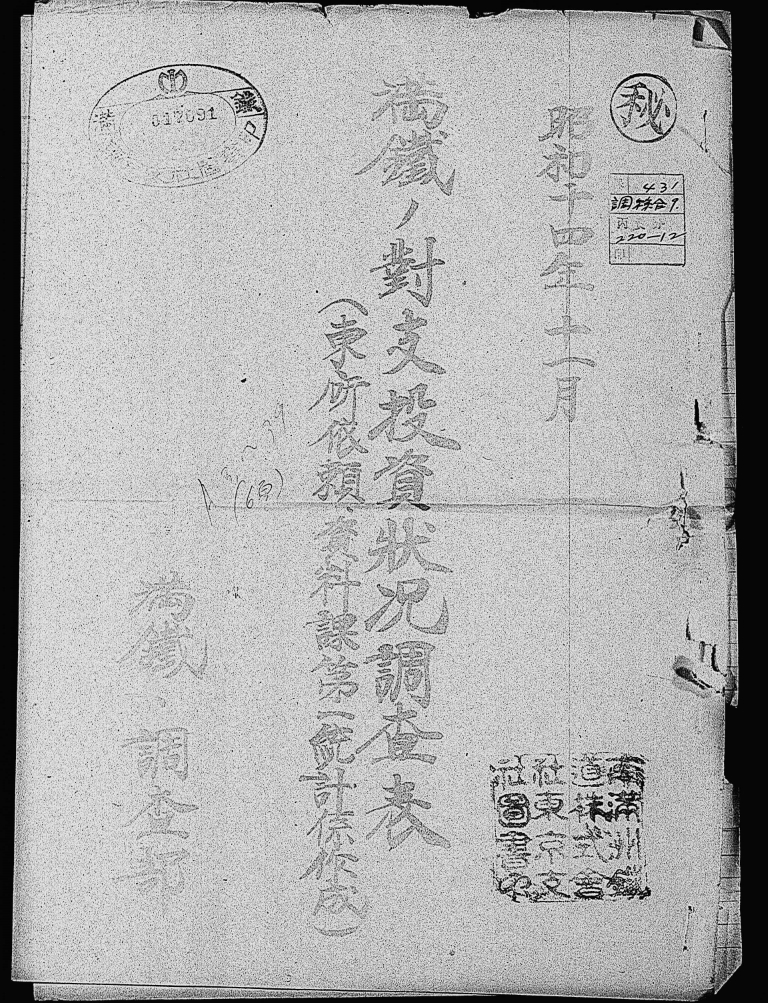 秘
431
調 綜合 7.
220-12
昭和十四年十一月
満鐵ノ對支投資狀况調査表
（東所依頼、資料課第一統計係作成）
~39
(6頁)
満鐵・調査部
012091
南満洲鐵
道株式會
社東京支
社圖書印